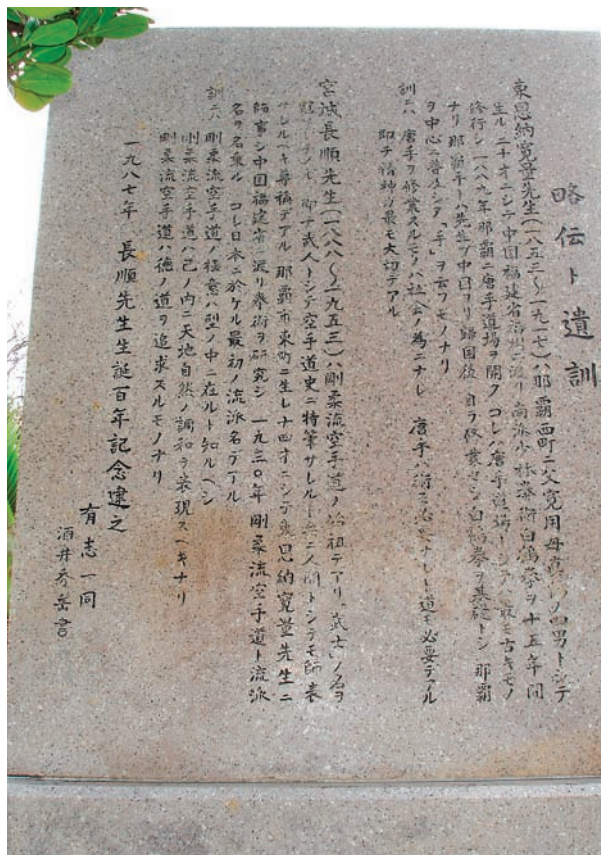 略伝ト遺訓
東恩納寛量先生(一八五三〜一九一七)ハ那覇西町ニ父寛用母真 ノ四男トシテ
生ル 二十才ニシテ中国福建省福州ニ渡リ南派少林拳術白鶴拳ヲ十五年間
修行シ 一八八九年那覇ニ唐手道場ヲ開ク コレハ唐手道場トシテハ最モ古キモノ
ナリ 那覇手トハ先生ガ中国ヨリ帰国後 自ラ修業セシ白鶴拳ヲ基礎トシ 那覇
ヲ中心ニ普及シタ「手」ヲ云フモノナリ
訓ニハ 唐手ヲ修業スルモノハ社会ノ為ニナレ 唐手ハ術モ必要ナレド道モ必要デアル
即チ精神ガ最モ大切デアル
宮城長順先生(一八八八〜一九五三)ハ剛柔流空手道ノ始祖デアリ、「武士」ノ名ヲ
シタル 即チ武人トシテ空手道史ニ特筆サレルト共ニ人間トシテモ師表
サレルベキ尊称デアル 那覇市東町ニ生レ十四才ニシテ東恩納寛量先生ニ
師事シ中国福建省ニ渡リ拳術ヲ研究シ 一九三〇年 剛柔流空手道ト流派
名ヲ名乗ル コレ日本ニ於ケル最初ノ流派名デアル
訓ニハ 剛柔流空手道ノ極意ハ型ノ中ニ在ルト知ルベシ
剛柔流空手道ハ己ノ内ニ天地自然ノ調和ヲ表現スベキナリ
剛柔流空手道ハ徳ノ道ヲ追求スルモノナリ
一九八七年 長順先生生誕百年記念建之
有志一同
酒井秀岳書